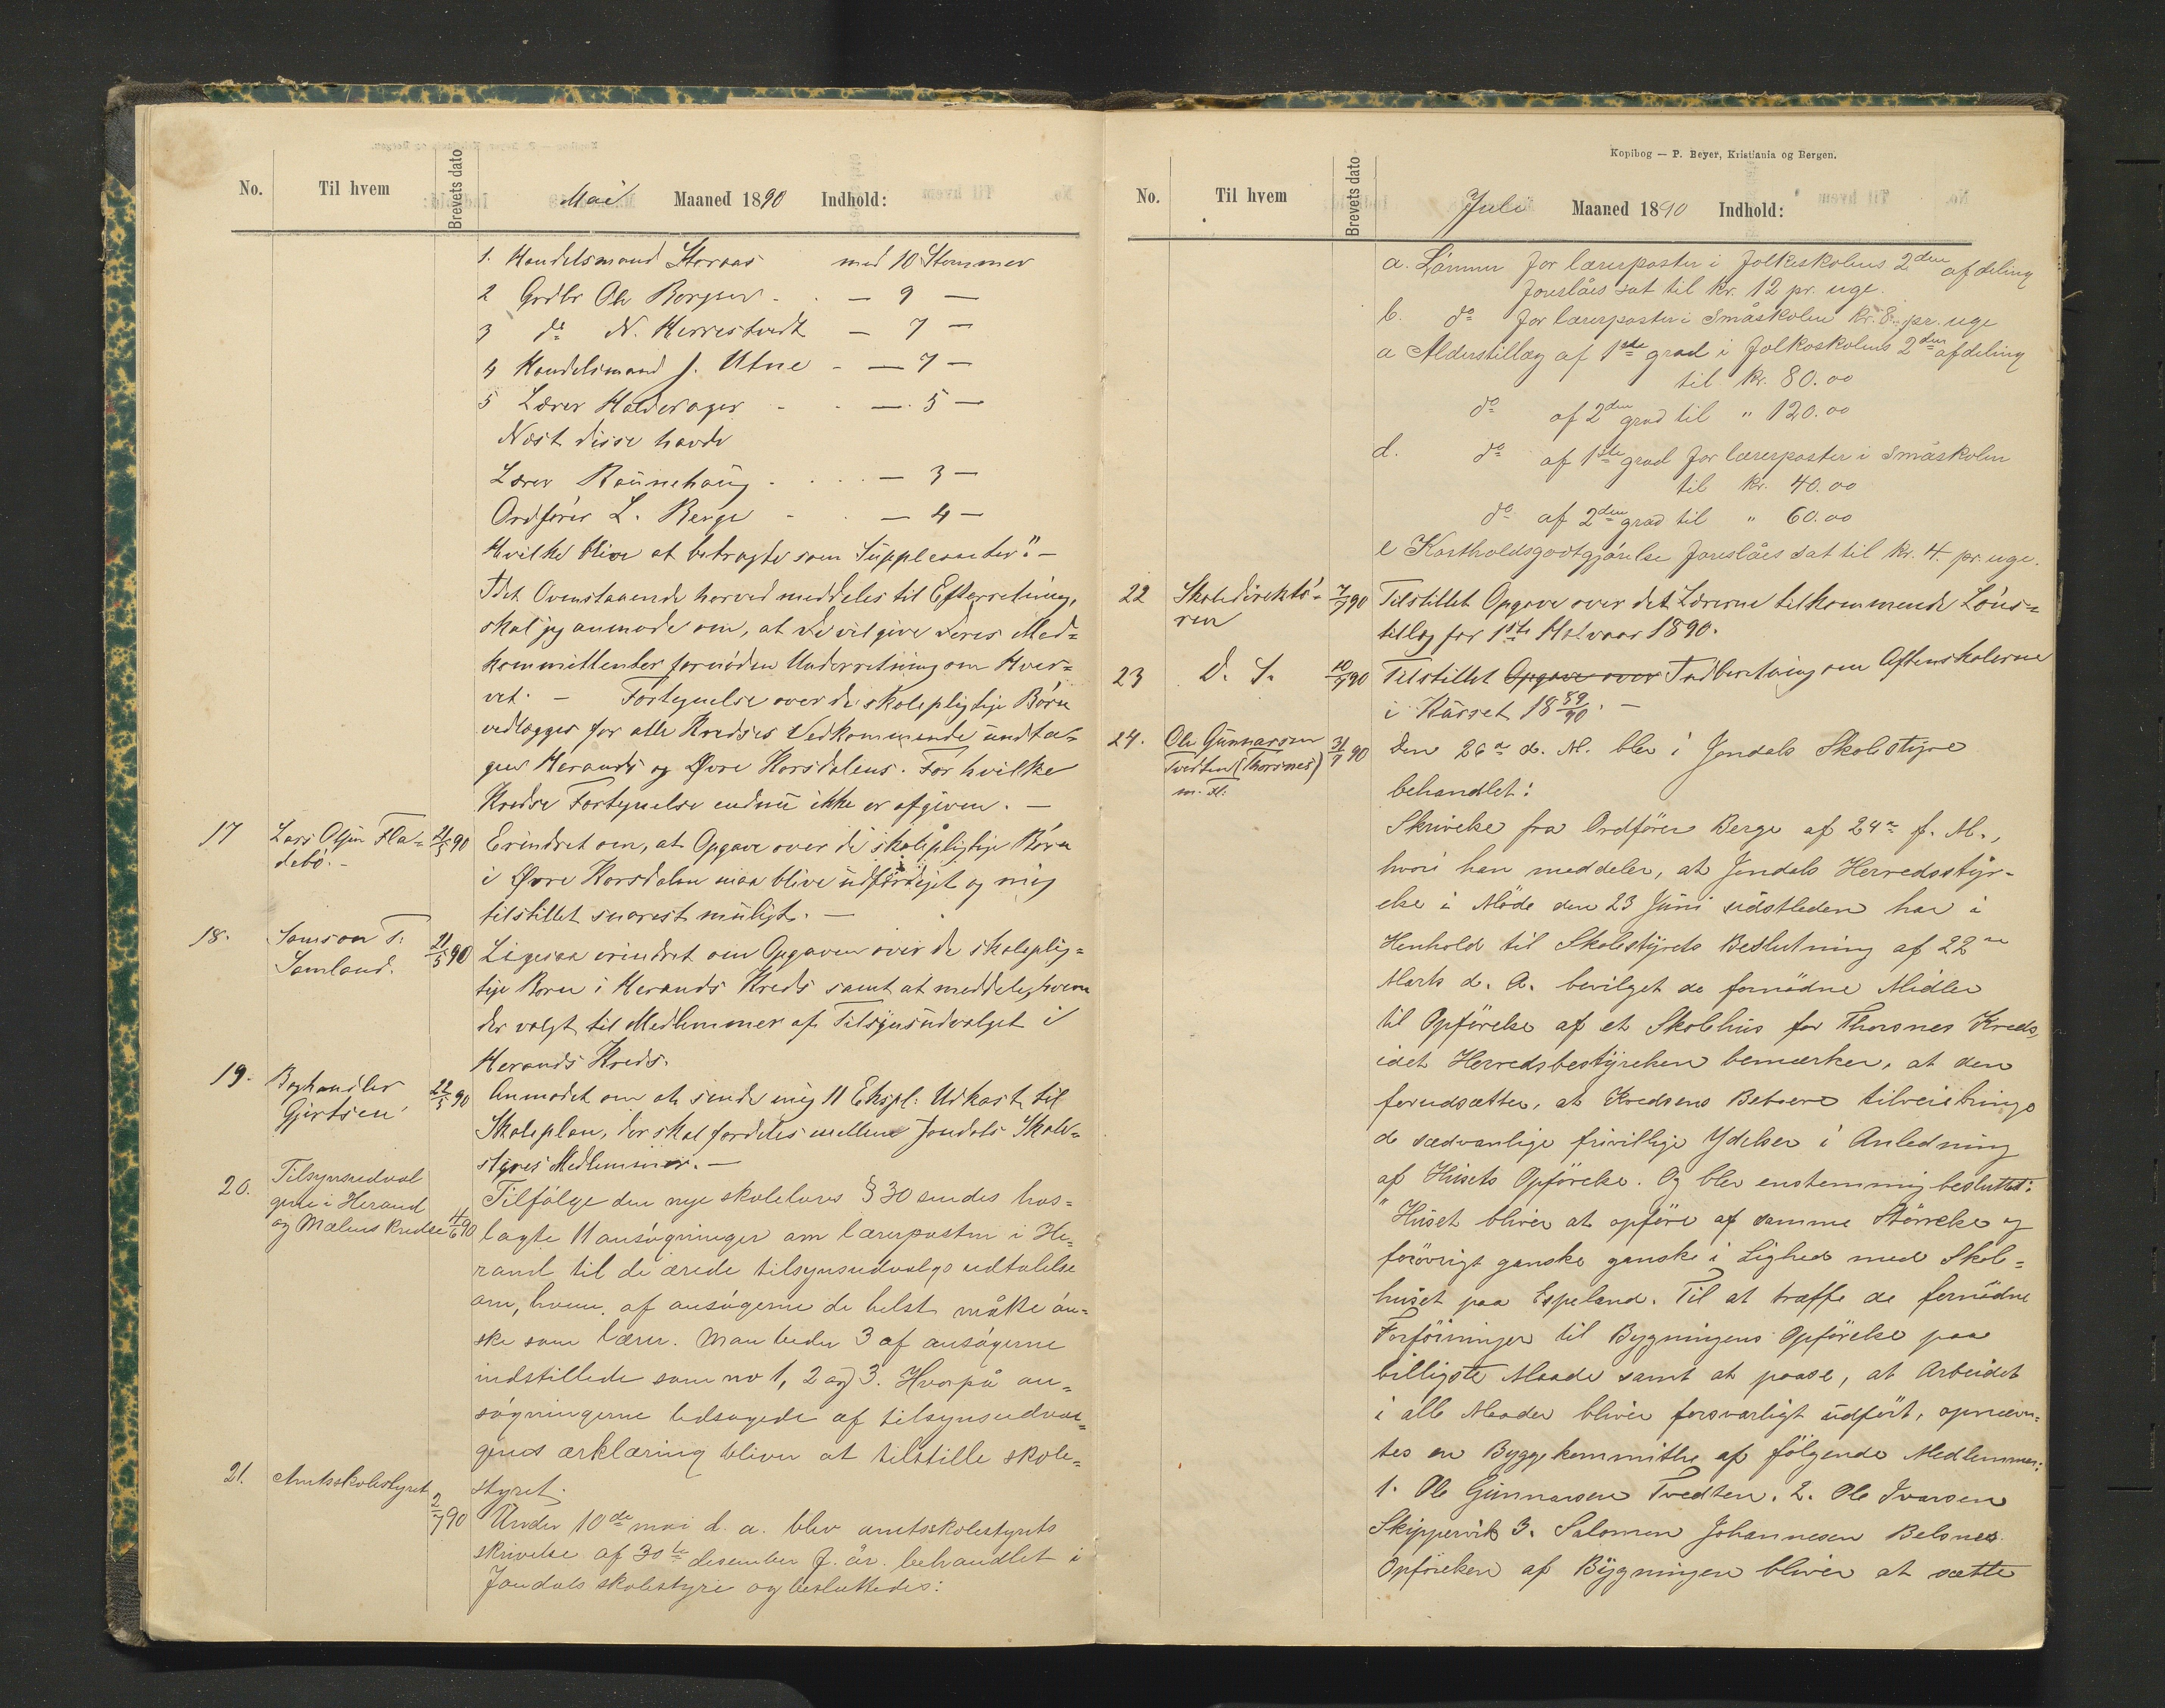 No.
Til hvem
Brevets dato
Mai Maaned 1890 Indhold:
1. Handelsmand Storaas med 10 Stemmer
2 Grdbr Ole Borgsen - - — 9 —
3 do N. Herrestvedt — 7 —
4 Handelsmand J. Utne - — 7 —
5 Lærer Halderager - - — 5 —
Næst disse havde
Lærer Raunehaug - . . . — 3 —
Ordfører L. Berge - . — 4 —
Hvilke blive at betragte som Suppleanter." —
Idet Ovenstaaende herved meddeles til Efterretning,
skal jeg anmode om, at De vil give Deres Med=
kommittenter fornøden Underretning om Hver=
vet. — Fortegnelse over de skolepligtige Børn
vedlægges for alle Kredses Vedkommende undta=
gen Herands og Øvre Korsdalens. For hvilke
Kredse Fortegnelse endnu ikke er afgiven. —
17 Lars Olsen Fla=
debø. -
21/5 90
Erindret om, at Opgave over de skolepligtige Børn
i Øvre Korsdalen maa blive udfærdiget og mig
tilstillet snarest muligt. —
18. Samson T.
Samland.
21/5 90
Ligesaa erindret om Opgaven over de skoleplig=
tige Børn i Herands Kreds samt at meddele, hvem
der valgt til Medlemmer af Tilsynsudvalget i
Herands Kreds.
19. Boghandler
Gjertsen
22/5 90
Anmodet om at sende mig 11 Ekspl. Udkast til
Skoleplan, der skal fordeles mellem Jondals Skole=
styres Medlemmer. —
20. Tilsynsudval
gene i Herand
og Mælens Kredse
11/6 90
Tilfølge den nye skolelovs § 30 sendes hos=
lagte 11 ansøgninger om lærerposten i He=
rand til de ærede tilsynsudvalgs udtalelse
om, hvem af ansøgerne de helst måtte øn=
ske som lærer. Man beder 3 af ansøgerne
indstillede som no 1, 2 og 3. Hvorpå an=
søgningerne ledsagede af tilsynsudval=
genes erklæring bliver at tilstille skole=
styret.
21. Amtsskolestyret
2/7 90
Under 10de mai d. a. blev amtsskolestyrets
skrivelse af 30te desember f. år. behandlet i
Jondals skolestyre og besluttedes:
Kopibog — P. Beyer, Kristiania og Bergen.
No.
Til hvem
Brevets dato
Juli Maaned 1890 Indhold:
a. Lønnen for lærerposter i folkeskolens 2den afdeling
foreslåes sat til kr. 12 pr. uge.
b. do for lærerposter i Småskolen kr. 8 pr. uge
a Alderstillæg af 1ste grad i folkeskolens 2den afdeling
til kr. 80.00
do af 2den grad til " 120.00
d. do af 1ste grad for lærerposter i småskolen
til kr. 40.00
do af 2den grad til " 60.00
e Kostholdsgodtgjørelse foreslåes sat til kr. 4. pr. uge.
22 Skoledirektø=
ren
7/7 90
Tilstillet Opgave over det Lærerne tilkommende Løns=
tillæg for 1ste Halvaar 1890.
23 D. S.
10/7 90
Tilstillet Opgave over Indberetning om Aftenskolerne
i Kurset 18 89/90. —
24. Ole Gunnarsen
Tvedten (Thorsnes)
m. fl.
31/7 90
Den 26de d. M. blev i Jondals Skolestyre
behandlet:
Skrivelse fra Ordfører Berge af 24de f. M.,
hvori han meddeler, at Jondals Herredsstyr-
else i Møde den 23 Juni sidstleden har i
Henhold til Skolestyrets Beslutning af 22de
Marts d. A. bevilget de fornødne Midler
til Opførelse af et Skolehus for Thorsnes Kreds,
idet Herredsbestyrelsen bemærker, at den
forudsætter, at Kredsens Beboere tilveiebringe
de sædvanlige frivillige Ydelser i Anledning
af Husets Opførelse. Og blev enstemmig besluttet:
"Huset bliver at opføre af samme Størrelse og
forøvrigt ganske ganske i Lighed med Skole=
huset paa Espeland. Til at træffe de fornødne
Forføininger til Bygningens Opførelse paa
billigste Maade samt at paase, at Arbeidet
i alle Maader bliver forsvarligt udført, opnævn=
tes en Byggekommitte af følgende Medlemmer:
1. Ole Gunnarsen Tvedten. 2. Ole Ivarsen
Skippervik 3. Salomon Johannesen Belsnes.
Opførelsen af Bygningen bliver at sætte